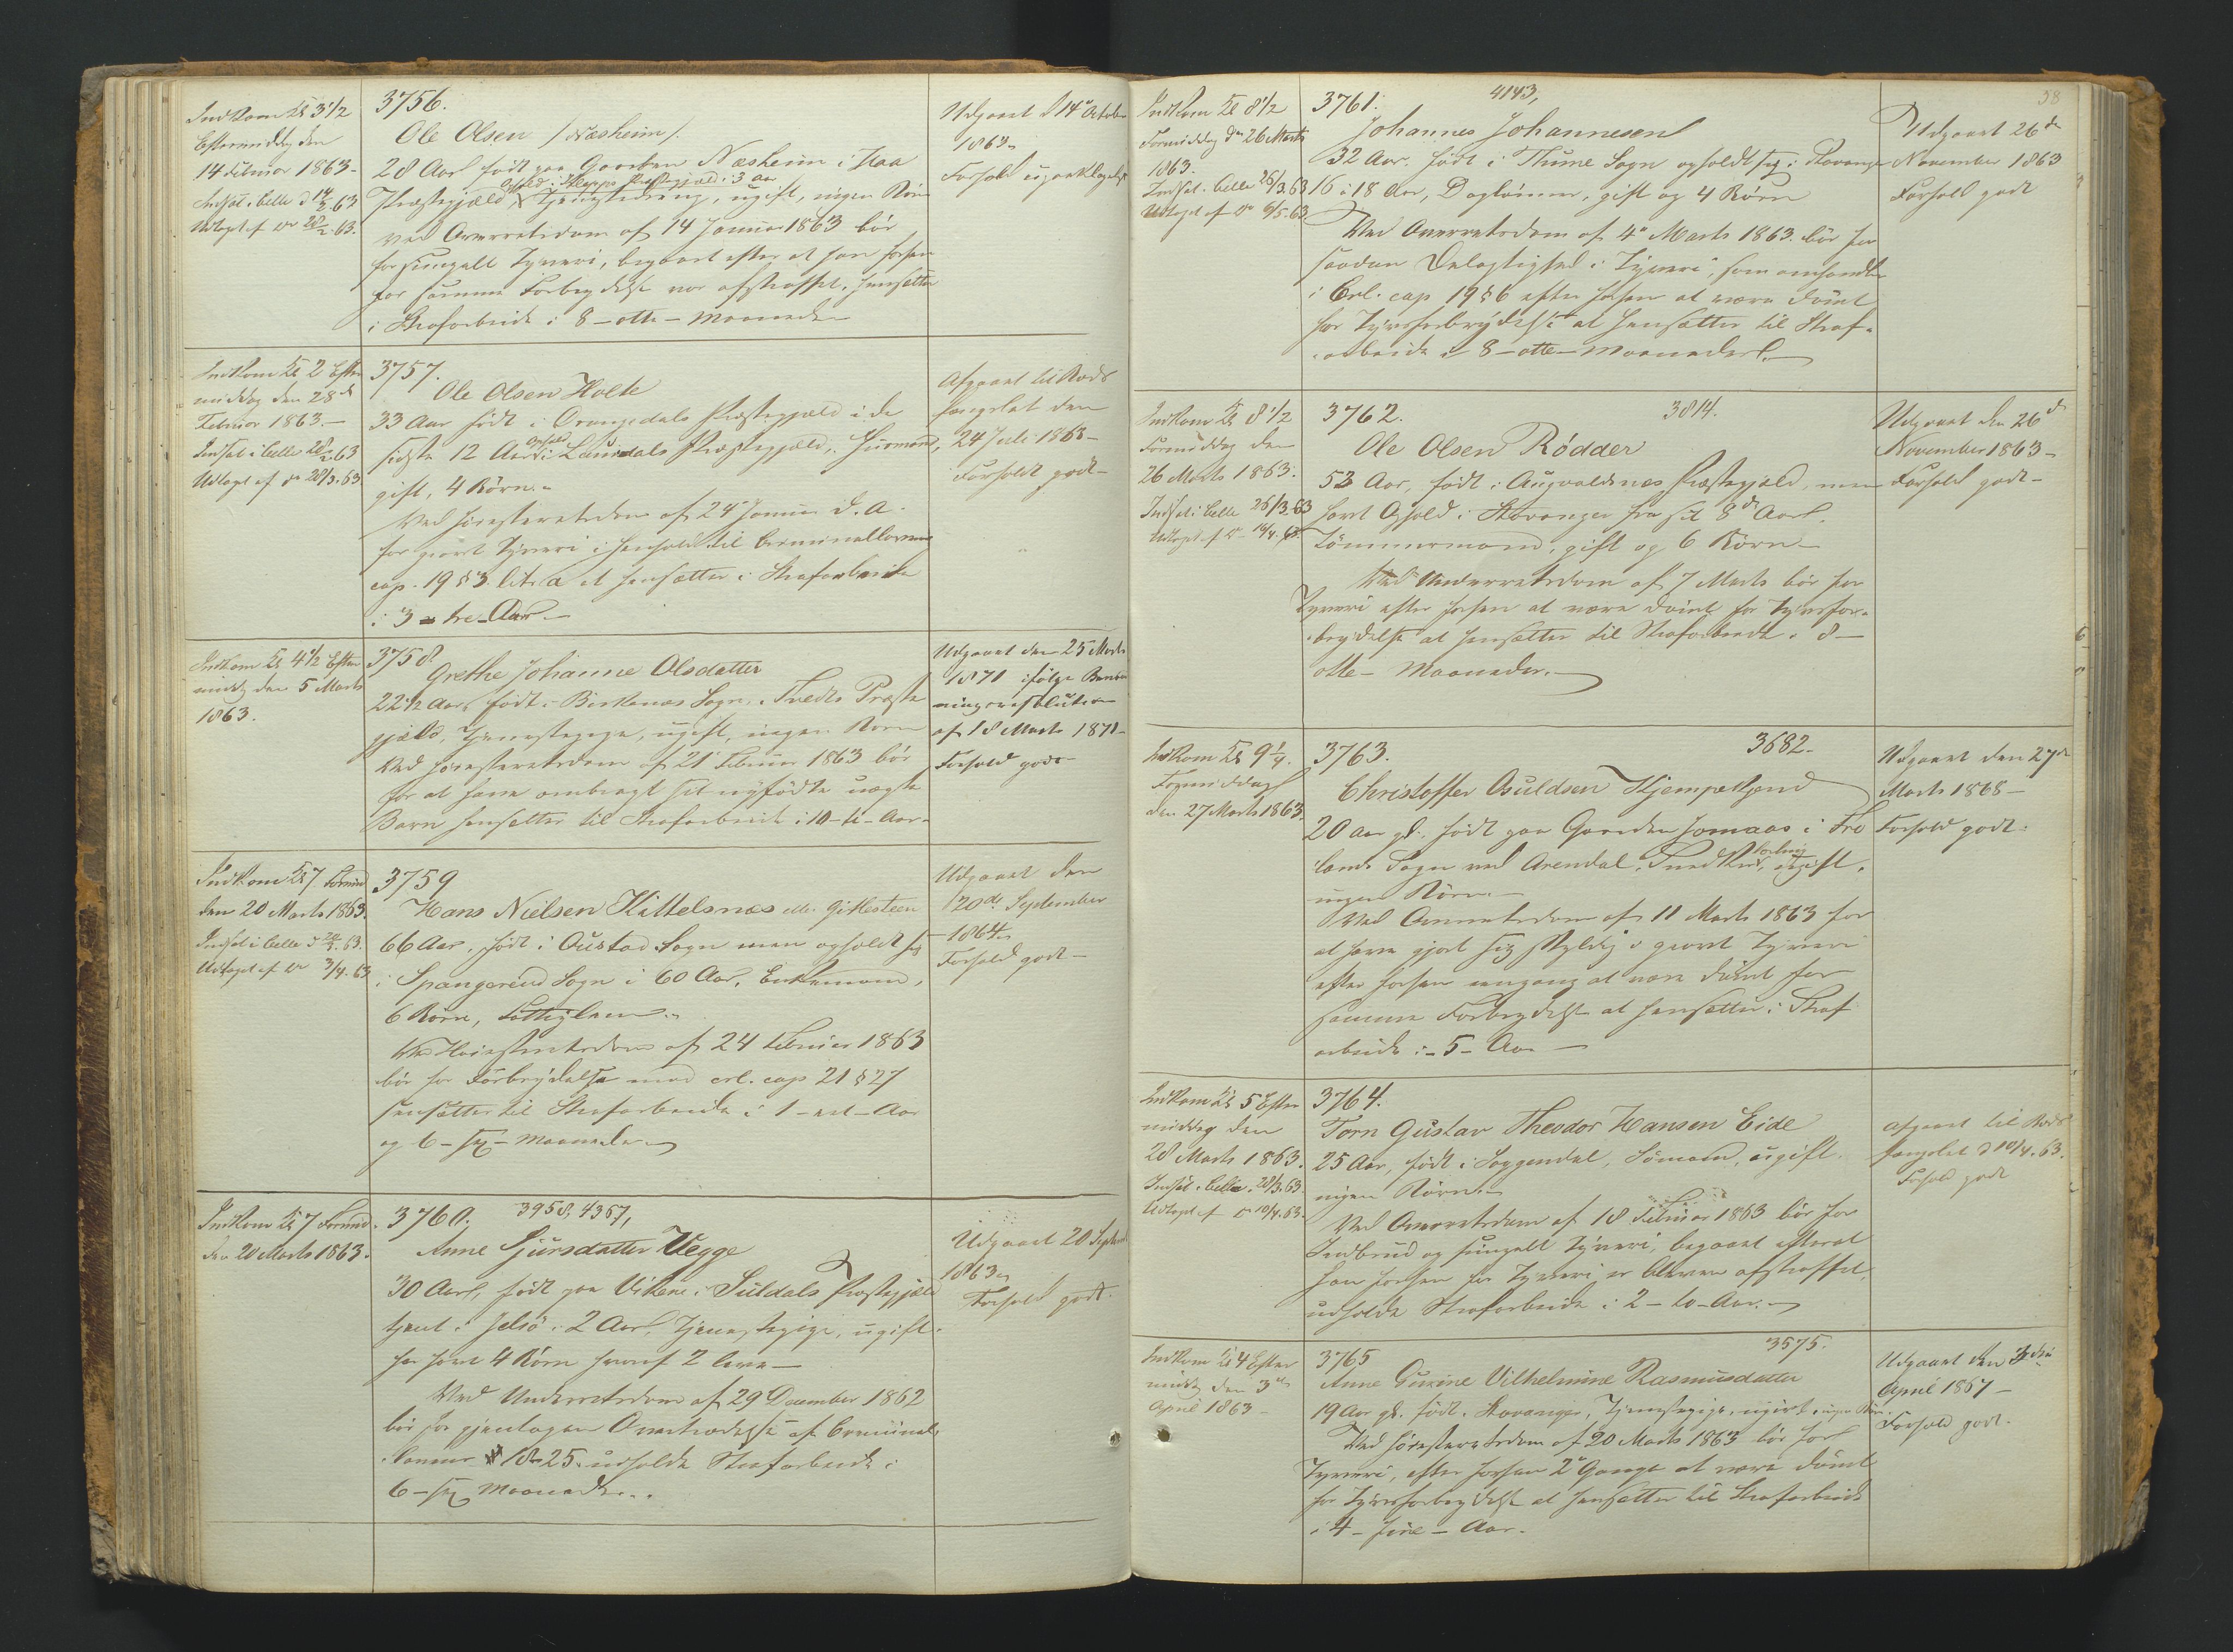 Indkom Kl 3 1/2
Eftermiddag den
14 Februar 1863-
Indsat i Celle d 14/2 63
Udtaget af do 28/2 63.
3756.
Ole Olsen /Næsheim/.
28 Aar født paa Gaarden Næsheim i Haa
Ophold i Klepps Præstegjæld i 3 Aar
Præstegjæld, Tjenestedreng, ugift, ingen Børn
Ved Overretsdom af 14 Januar 1863 bør
for simpelt Tyveri, begaaet efter at han forhen
for samme Forbrydelse var afstraffet, hensættes
i Strafarbeide i 8 - otte - Maaneder
Udgaaet d 14de October
1863.
Forhold upaaklageligt
Indkom Kl 2 Efter
middag den 28de
Februar 1863.-
Indsat i Celle 28/2 63
Udtaget af do 28/3. 63
3757.
Ole Olsen Holte
33 Aar født i Drangedals Præstegjæld i de
sidste 12 Aar Ophold i Laurdals Præstegjæld, Husmand,
gift, 4 Børn.-
Ved Høiesteretsdom af 24de Januar d. A.
for grovt Tyveri i Henhold til Criminallovens
cap. 19 § 3 litr a at hensættes i Strafarbeide
i 3 - tre - Aar.-
Afgaaet til Bods
fængslet den
24 Juli 1863-
Forhold godt-
Indkom Kl 4 1/2 Efter
middg den 5 Marts
1863.
3758.
Grethe Johanne Olsdatter
22 1/2 Aar, født i Birkenæs Sogn, Tvedts Præste
gjæld, Tjenestepige, ugift, ingen Børn
Ved Høiesteretsdom af 21 Februar 1863 bør
for at have ombragt sit nyfødte uægte
Barn hensættes til Strafarbeide i 10 - ti - Aar-
Udgaaet den 25 Marts
1871 ifølge Benaad
ningsresolution
af 18 Marts 1871-
Forhold godt-
Indkom Kl 7 Formid
den 20 Marts 1863.
Indsat i Celle d 20/3. 63.
Udtaget af do 3/4. 63
3759
Hans Nielsen Kittelsnæs eller Gitlesteen
66 Aar, født i Oustad Sogn men opholdt sig
i Spangereid Sogn i 60 Aar, Enkemand,
6 Børn, Fattiglem.-
Ved Høiesteretsdom af 24 Februar 1863
bør for Forbrydelse mod crl. cap 21 § 27
hensættes til Strafarbeide i 1 - eet - Aar
og 6 - sex - Maaneder.
Udgaaet den
20de September
1864.
Forhold godt-
Indkom Kl 7 Formid.
den 20 Marts 1863.
3760. 3958, 4367,
Anne Sjursdatter Vegge
30 Aar, født paa Vikene i Suldals Præstegjæld
tjent i Jelsø i 2 Aar, Tjenestepige, ugift
har havt 4 Børn hvoraf 2 leve-
Ved Underretsdom af 29 December 1862
bør for gjentagen Overtrædelse af Criminal-
lovens 18-25 udholde Strafarbeide i
6 - sex Maaneder.-
Udgaaet 20 Septem
1863.
Forhold godt.
38
Indkom Kl 8 1/2
Formiddag den 26 Marts
1863.
Indsat i Celle 26/3. 63
Udtaget af do 6/5. 63.
3761. 4143,
Johannes Johannesen
32 Aar, født i Thime Sogn opholdt sig i Stavanger
16 à 18 Aar, Daglønner, gift og 4 Børn
Ved Overretsdom af 4de Marts 1863 bør for
saadan Delagtighed i Tyveri, som omhandles
i Crl. cap 19 § 6 efter forhen at være dømt
for Tyvsforbrydelse at hensættes til Straf-
arbeide i 8 - otte - Maaneder.-
Udgaaet 26de
November 1863
Forhold godt
Indkom Kl 8 1/2
Formiddag den
26 Marts 1863.
Indsat i Celle 26/3 63
Udtaget af do 10/4. 63.
3762. 3814.
Ole Olsen Rødder
53 Aar, født i Augvaldsnæs Præstegjæld, men
havt Ophold i Stavanger fra sit 8de Aar,
Tømmermand, gift og 6 Børn-
Ved Underretsdom af 7 Marts bør for
Tyveri efter forhen at være dømt for Tyvsfor-
brydelse at hensættes til Strafarbeide i 8-
otte - Maaneder.-
Udgaaet den 26de
November 1863-
Forhold godt-
Indkom Kl 9 1/4.
Formiddag
den 27 Marts 1863.
3763. 3682-
Christoffer Osuldsen Kjempekjend
20 Aar gl. født paa Gaarden Jomaas i Fro
lands Sogn ved Arendal, Snedker, ugift,
ingen Børn.-
Ved Overretsdom af 11 Marts 1863 for
at have gjort sig skyldig i grovt Tyveri
efter forhen engang at være dømt for
samme Forbrydelse at hensættes i Straf
arbeide i - 5 - Aar-
Udgaaet den 27de
Marts 1868-
Forhold godt.
Indkom Kl 5 Efter
middag den
28 Marts 1863.
Indsat i Celle 28/3. 63.
Udtaget af do 10/4. 63.
3764.
Torn Gustav Theodor Hansen Eide
25 Aar, født i Soggendal, Sømand, ugift
ingen Børn.-
Ved Overretsdom af 18 Februar 1863 bør for
Indbrud og simpelt Tyveri, begaaet efterat
han forhen for Tyveri er bleven afstraffet,
udholde Strafarbeide i 2 - to - Aar.-
Afgaaet til Bods
fængslet d 10/4. 63.
Forhold godt
Indkom Kl 4 Efter
middg den 3die
April 1863-
3765 3575.
Anne Gurine Vilhelmine Rasmusdatter
19 Aar gl. født i Stavanger, Tjenestepige, ugivt, ingen Børn.
Ved Høiesteretsdom af 20 Marts 1863 bør for
Tyveri, efter forhen 2de Gange at være dømt
for Tyvsforbrydelse at hensættes til Strafarbeide
i 4 - fire - Aar.
Udgaaet den 3die
April 1867-
Forhold godt.